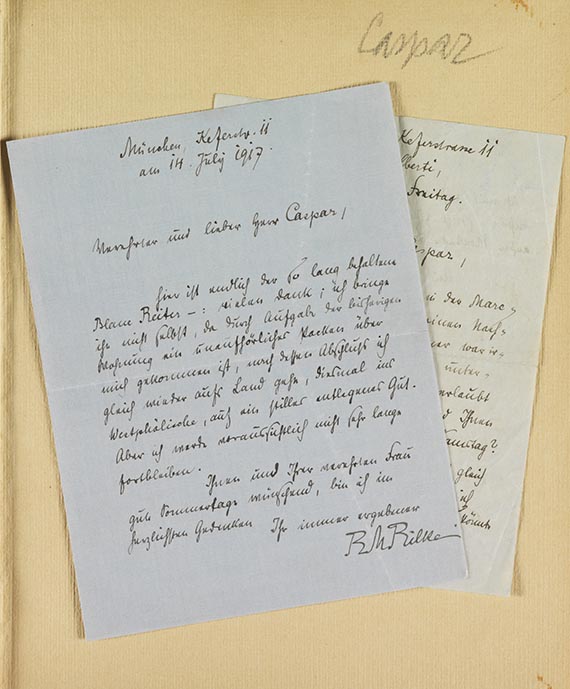 Caspar
München, Keferstr. 11
am 14. July 1917.
Verehrter und lieber Herr Caspar,
hier ist endlich der so lang behaltene
Blaue Reiter –: vielen Dank; ich bringe
ihn nicht selbst, da durch Aufgabe der bisherigen
Wohnung ein unaufhörliches Packen über
mich gekommen ist, nach dessen Abschluss ich
gleich wieder aufs Land gehe, diesmal ins
Westphälische, auf ein stilles entlegenes Gut.
Aber ich werde voraussichtlich nicht sehr lange
fortbleiben.
Ihnen und Ihrer verehrten Frau
gute Sommertage wünschend, bin ich im
herzlichsten Gedenken Ihr immer ergebener
RMRilke
Keferstrasse 11
Freitag.
aspar,
i der Marc-
einen Nach-
unter-
erlaubt
d Ihnen
amstag?
gleich
ich
könnte